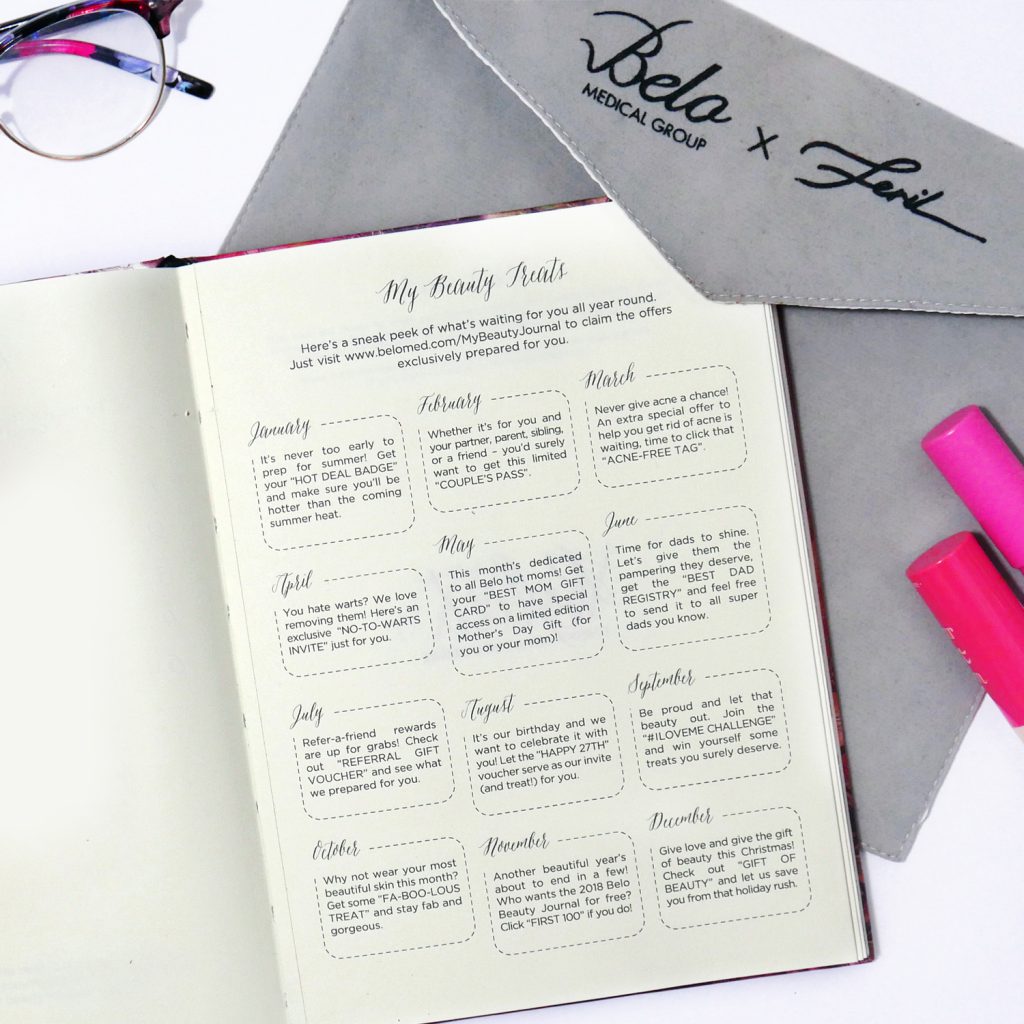 Belo
MEDICAL GROUP
X
My Beauty Treats
Here's a sneak peek of what's waiting for you all year round.
Just visit www.belomed.com/MyBeautyJournal to claim the offers
exclusively prepared for you.
January
It's never too early to
prep for summer! Get
your "HOT DEAL BADGE"
and make sure you'll be
hotter than the coming
summer heat.
February
Whether it's for you and
your partner, parent, sibling,
or a friend – you'd surely
want to get this limited
"COUPLE'S PASS".
March
Never give acne a chance!
An extra special offer to
help you get rid of acne is
waiting, time to click that
"ACNE-FREE TAG".
April
You hate warts? We love
removing them! Here's an
exclusive "NO-TO-WARTS
INVITE" just for you.
May
This month's dedicated
to all Belo hot moms! Get
your "BEST MOM GIFT
CARD" to have special
access on a limited edition
Mother's Day Gift (for
you or your mom)!
June
Time for dads to shine.
Let's give them the
pampering they deserve,
get the "BEST DAD
REGISTRY" and feel free
to send it to all super
dads you know.
July
Refer-a-friend rewards
are up for grabs! Check
out "REFERRAL GIFT
VOUCHER" and see what
we prepared for you.
August
It's our birthday and we
want to celebrate it with
you! Let the "HAPPY 27TH"
voucher serve as our invite
(and treat!) for you.
September
Be proud and let that
beauty out. Join the
"#ILOVEME CHALLENGE"
and win yourself some
treats you surely deserve.
October
Why not wear your most
beautiful skin this month?
Get some "FA-BOO-LOUS
TREAT" and stay fab and
gorgeous.
November
Another beautiful year's
about to end in a few!
Who wants the 2018 Belo
Beauty Journal for free?
Click "FIRST 100" if you do!
December
Give love and give the gift
of beauty this Christmas!
Check out "GIFT OF
BEAUTY" and let us save
you from that holiday rush.